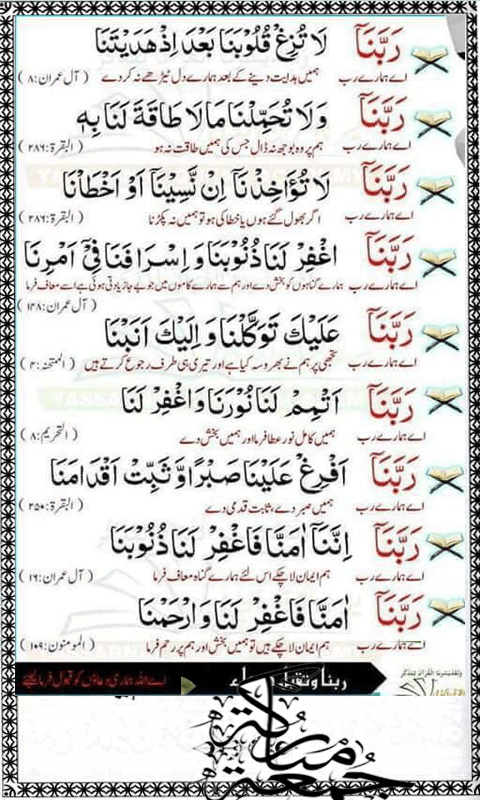 رَبَّنَآ لَا تُزِغْ قُلُوْبَنَا بَعْدَ اِذْ هَدَيْتَنَا
اے ہمارے رب ہمیں ہدایت دینے کے بعد ہمارے دل ٹیڑھے نہ کر دے (آل عمران:۸)
رَبَّنَآ وَلَا تُحَمِّلْنَا مَا لَا طَاقَةَ لَنَا بِهٖ
اے ہمارے رب ہم پر وہ بوجھ نہ ڈال جس کی ہمیں طاقت نہ ہو (البقرۃ:۲۸۶)
رَبَّنَآ لَا تُؤَاخِذْنَآ اِنْ نَّسِيْنَآ اَوْ اَخْطَاْنَا
اے ہمارے رب اگر بھول گئے ہوں یا خطا کی ہو تو ہمیں نہ پکڑنا (البقرۃ:۲۸۶)
رَبَّنَآ اغْفِرْ لَنَا ذُنُوْبَنَا وَاِسْرَافَنَا فِيْٓ اَمْرِنَا
اے ہمارے رب ہمارے گناہوں کو بخش دے اور ہم سے ہمارے کاموں میں جو بے جا زیادتی ہوئی ہے اسے معاف فرما
(آل عمران:۱۴۸)
رَبَّنَآ عَلَيْكَ تَوَكَّلْنَا وَاِلَيْكَ اَنَبْنَا
اے ہمارے رب تجھی پر ہم نے بھروسہ کیا ہے اور تیری ہی طرف رجوع کرتے ہیں (الممتحنہ:۴)
رَبَّنَآ اَتْمِمْ لَنَا نُوْرَنَا وَاغْفِرْ لَنَا
اے ہمارے رب ہمیں کامل نور عطا فرما اور ہمیں بخش دے (التحریم:۸)
رَبَّنَآ اَفْرِغْ عَلَيْنَا صَبْرًا وَّثَبِّتْ اَقْدَامَنَا
اے ہمارے رب ہمیں صبر دے، ثابت قدمی دے (البقرۃ:۲۵۰)
رَبَّنَآ اِنَّنَآ اٰمَنَّا فَاغْفِرْ لَنَا ذُنُوْبَنَا
اے ہمارے رب ہم ایمان لا چکے اس لئے ہمارے گناہ معاف فرما (آل عمران:۱۶)
رَبَّنَآ اٰمَنَّا فَاغْفِرْ لَنَا وَارْحَمْنَا
اے ہمارے رب ہم ایمان لا چکے ہیں تو ہمیں بخش اور ہم پر رحم فرما (المومنون:۱۰۹)
وَلَقَدْ يَسَّرْنَا الْقُرْاٰنَ لِلذِّكْرِ
ربنا وتقبل دعاء اے اللہ ہماری دعاؤں کو قبول فرما لیجئے
جمعة مباركة